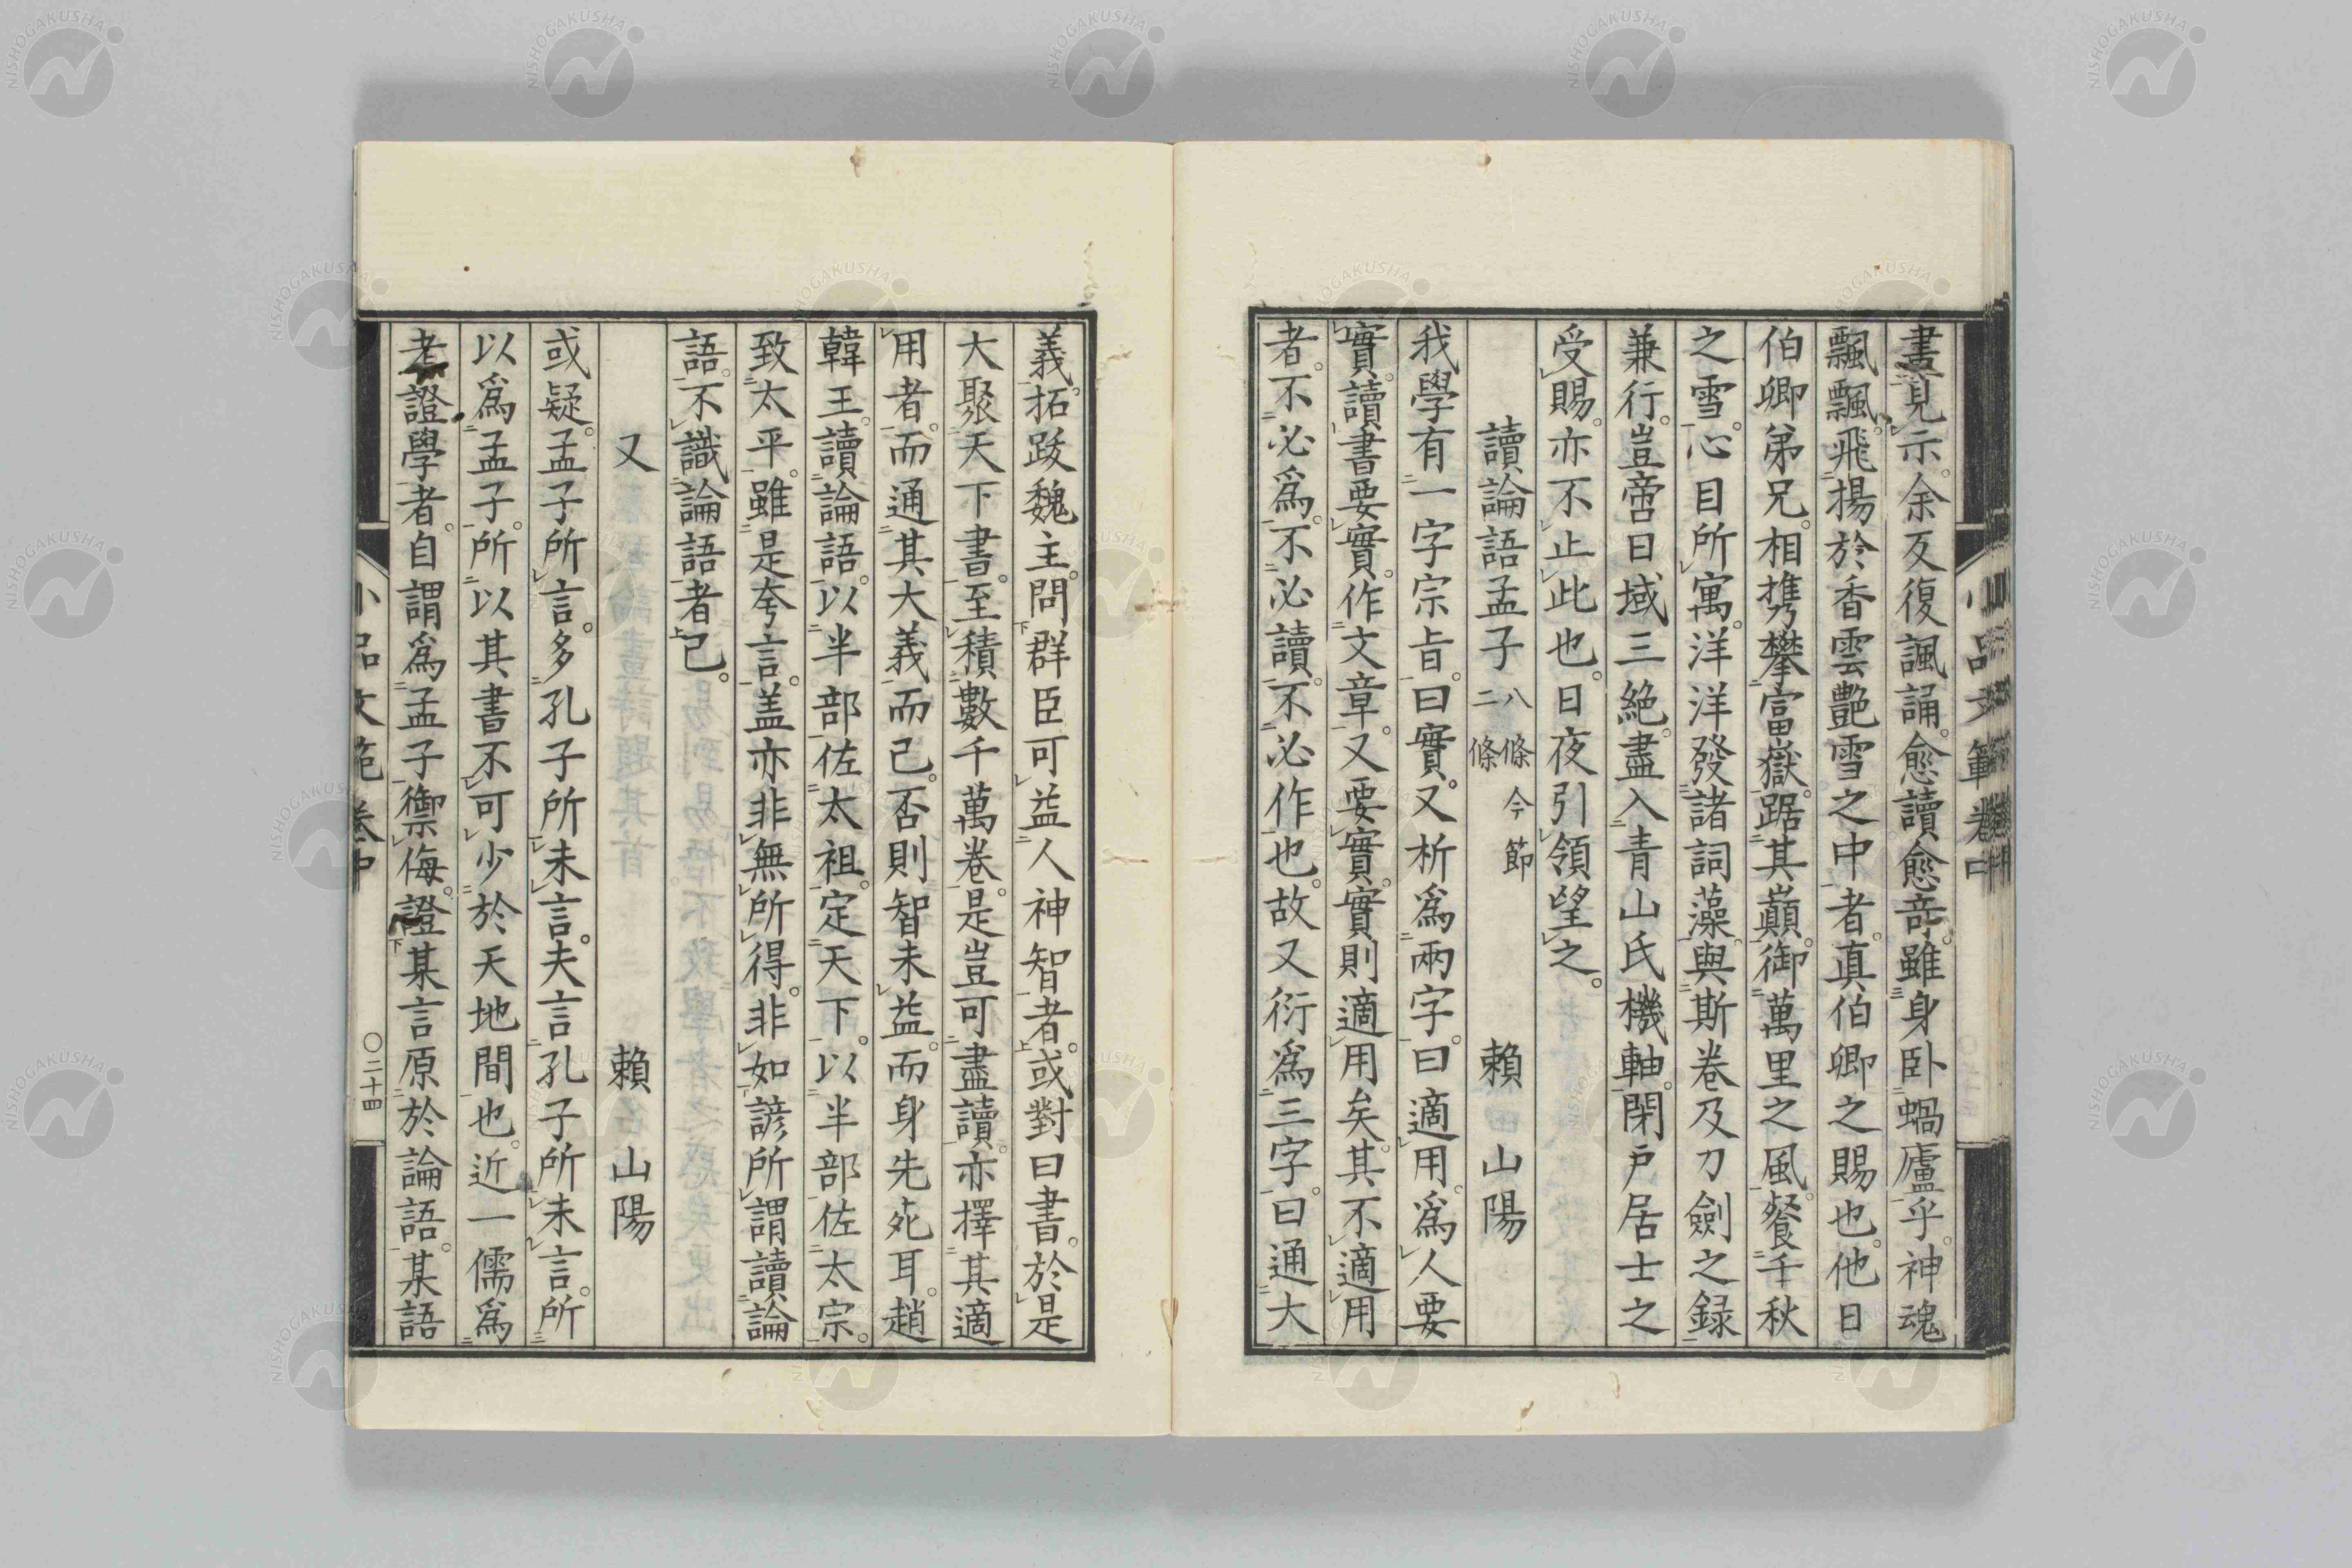 畫見示。余反復諷誦。愈讀愈奇。雖身卧蝸廬乎。神魂
飄飄。飛揚於香雲艶雪之中者。真伯卿之賜也。他日
伯卿弟兄。相携攀富嶽。踞其巔。御萬里之風。餐千秋
之雪。心目所寓。洋洋發諸詞藻。與斯卷及刀劍之録
兼行。豈啻日域三絶。盡入青山氏機軸。閑戶居士之
受賜。亦不止此也。日夜引領望之。
讀論語孟子 八條今節二條 賴山陽
我學有一字宗旨。曰實。又析爲兩字。曰適用。爲人要
實。讀書要實。作文章。又要實。實則適用矣。其不適用
者。不必爲。不必讀。不必作也。故又衍爲三字。曰通大
義。拓跋魏主。問群臣可益人神智者。或對曰書。於是
大聚天下書。至積數千萬卷。是豈可盡讀。亦擇其適
用者。而通其大義而已。否則智未益。而身先死耳。趙
韓王。讀論語。以半部佐太祖。定天下。以半部佐太宗。
致太平。雖是夸言。盖亦非無所得。非如諺所謂讀論
語。不識論語者已。
又 賴山陽
或疑。孟子所言。多孔子所未言。夫言孔子所未言。所
以爲孟子。所以其書不可少於天地間也。近一儒爲
考證學者。自謂爲孟子禦侮。證某言原於論語。某語
小品文範卷中
〇二十四
小品文範卷中
NISHOGAKUSHA